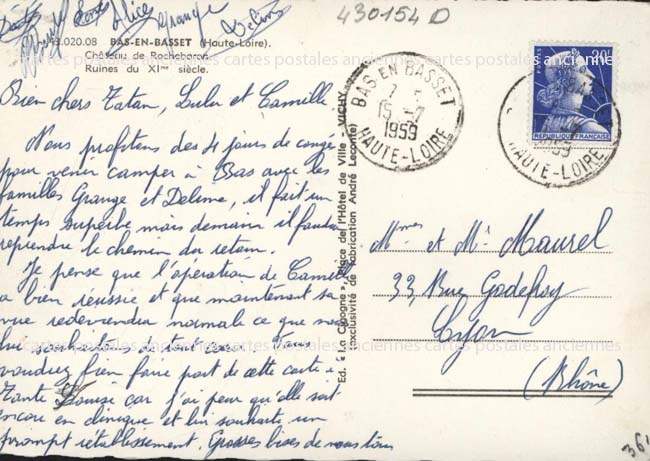 430154 D
Alice Grange Delime
43.020.08 BAS-EN-BASSET (Haute-Loire).
Château de Rochebaron
Ruines du XIme siècle.
Bien chers Tatan, Lulu et Camille.
Nous profitons des 4 jours de congé
pour venir camper à Bas avec les
familles Grange et Delime, il fait un
temps superbe mais demain il faudra
reprendre le chemin du retour.
Je pense que l'opération de Camille
a bien réussie et que maintenant sa
vue redeviendra normale ce que nous
lui souhaitons de tout cœur. Vous
voudrez bien faire part de cette carte à
Tante Louise car j'ai peur qu'elle soit
encore en clinique et lui souhaite un
prompt rétablissement. Grosses bises de nous tous
Ed. « La Cigogne », Place de l'Hôtel de Ville - VICHY
(exclusivité de fabrication André Leconte)
BAS EN BASSET
15 -7
1959
HAUTE-LOIRE
POSTES 20F
REPUBLIQUE FRANÇAISE
1959
HAUTE-LOIRE
Mmes et Mr Maurel
33, Rue Godefroy
Lyon
(Rhône)
cartes postales anciennes cartes postales anciennes cartes postales anciennes
cartes postales anciennes cartes postales anciennes cartes postales anciennes